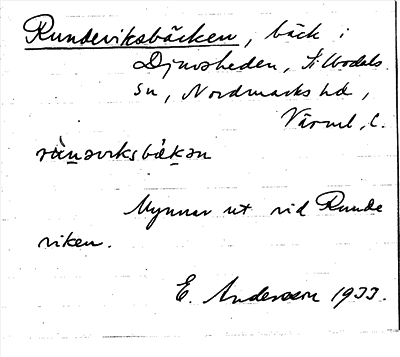 Rundeviksbäcken, bäck i
Djuvsheden, Silbodals
sn, Nordmarks hd,
Värml. l.
rùnəviksbäkən
Mynnar ut vid Runde
viken.
E. Andersson 1933.